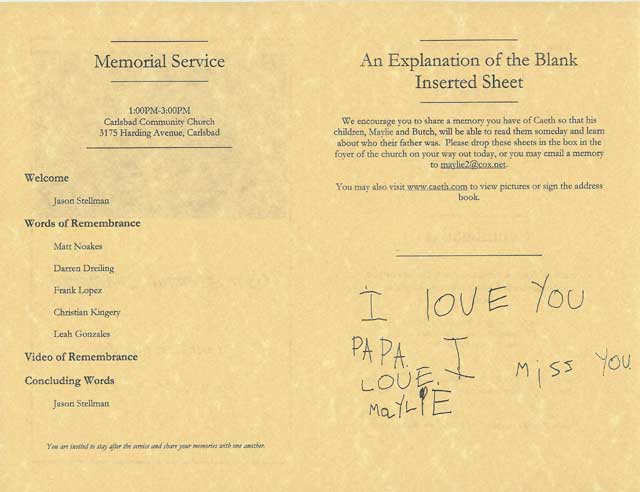 Memorial Service
1:00PM-3:00PM
Carlsbad Community Church
3175 Harding Avenue, Carlsbad
Welcome
Jason Stellman
Words of Remembrance
Matt Noakes
Darren Dreiling
Frank Lopez
Christian Kingery
Leah Gonzales
Video of Remembrance
Concluding Words
Jason Stellman
You are invited to stay after the service and share your memories with one another.
An Explanation of the Blank
Inserted Sheet
We encourage you to share a memory you have of Caeth so that his
children, Maylie and Butch, will be able to read them someday and learn
about who their father was.  Please drop these sheets in the box in the
foyer of the church on your way out today, or you may email a memory
to maylie2@cox.net.
You may also visit www.caeth.com to view pictures or sign the address
book.
I LOVE YOU
PAPA. I MiSS YOU
LOVE.
MaYLiE